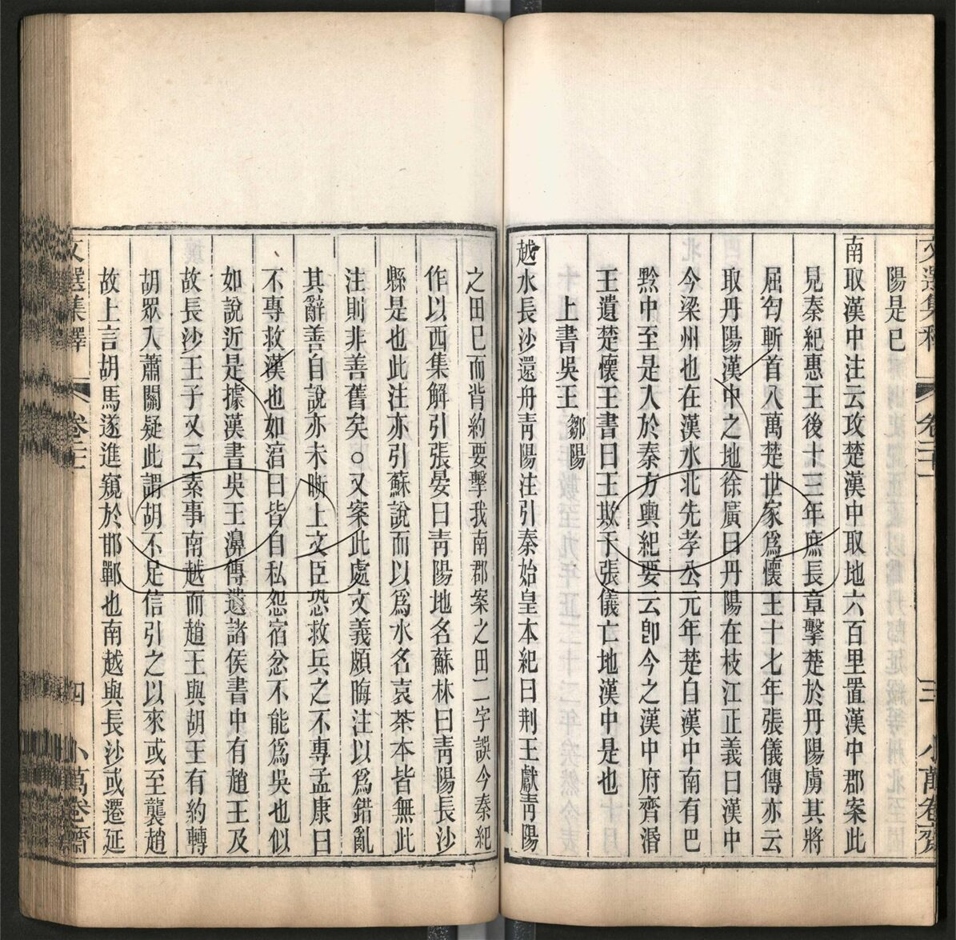 文選集釋 卷二十一 三 小萬卷齋
陽是巳
南取漢中注云攻楚漢中取地六百里置漢中郡案此
見秦紀惠王後十三年庶長章擊楚於丹陽虜其將
屈匄斬首八萬楚世家爲懷王十七年張儀傳亦云
取丹陽漢中之地徐廣曰丹陽在枝江正義曰漢中
今梁州也在漢水北先孝公元年楚自漢中南有巴
黔中至是入於秦方輿紀要云卽今之漢中府齊湣
王遺楚懷王書曰王欺于張儀亡地漢中是也
上書吳王 鄒陽
越水長沙還舟靑陽注引秦始皇本紀曰荆王獻靑陽
之田巳而背約要擊我南郡案之田二字誤今秦紀
作以西集解引張晏曰靑陽地名蘇林曰靑陽長沙
縣是也此注亦引蘇說而以爲水名袁茶本皆無此
注則非善舊矣○又案此處文義頗晦注以爲錯亂
其辭善自說亦未晰上文臣恐救兵之不專孟康曰
不專救漢也如湻曰皆自私怨宿忿不能爲吳也似
如說近是據漢書吳王濞傳遺諸侯書中有趙王及
故長沙王子又云素事南越而趙王與胡王有約轉
胡眾入蕭關疑此謂胡不足信引之以來或至襲趙
故上言胡馬遂進窺於邯鄲也南越與長沙或遷延
文選集釋 卷二十一 四 小萬卷齋